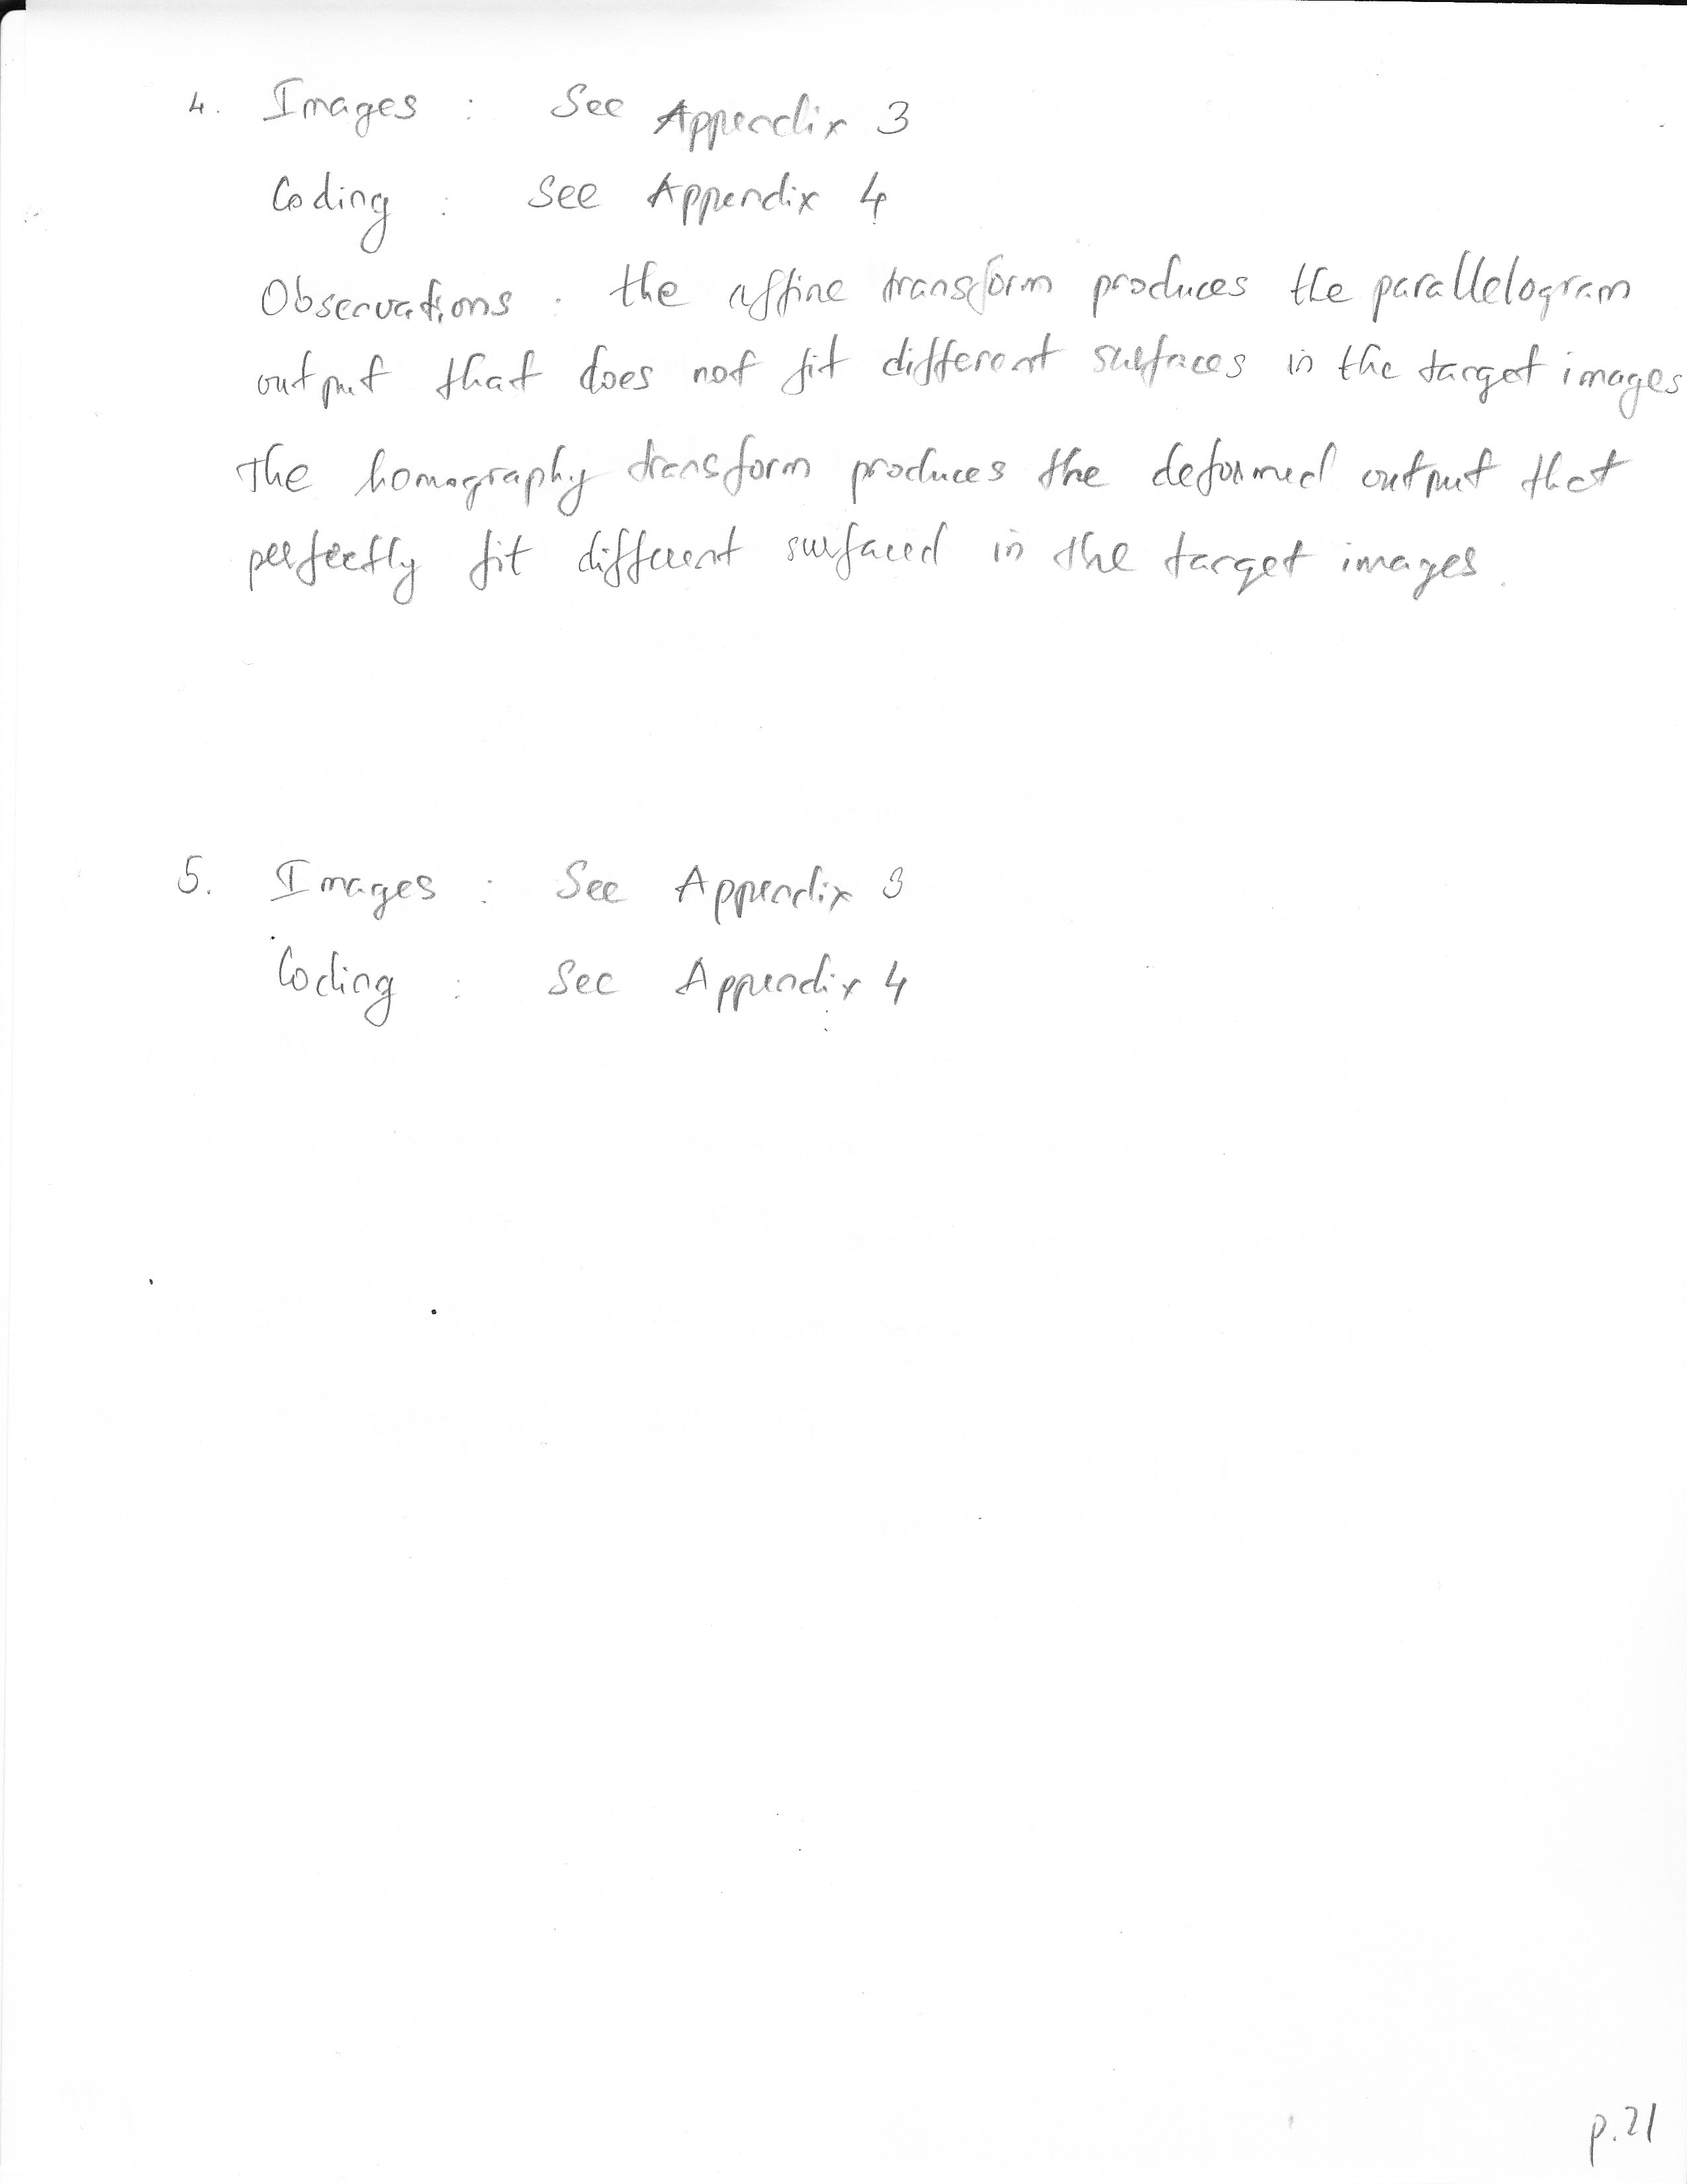 4. Images : See Appendix 3
Coding : See Appendix 4
Observations : the affine transform produces the parallelogram
output that does not fit different surfaces in the target images
The homography transform produces the deformed output that
perfectly fit different surfaced in the target images.
5. Images : See Appendix 3
Coding : See Appendix 4
p.21